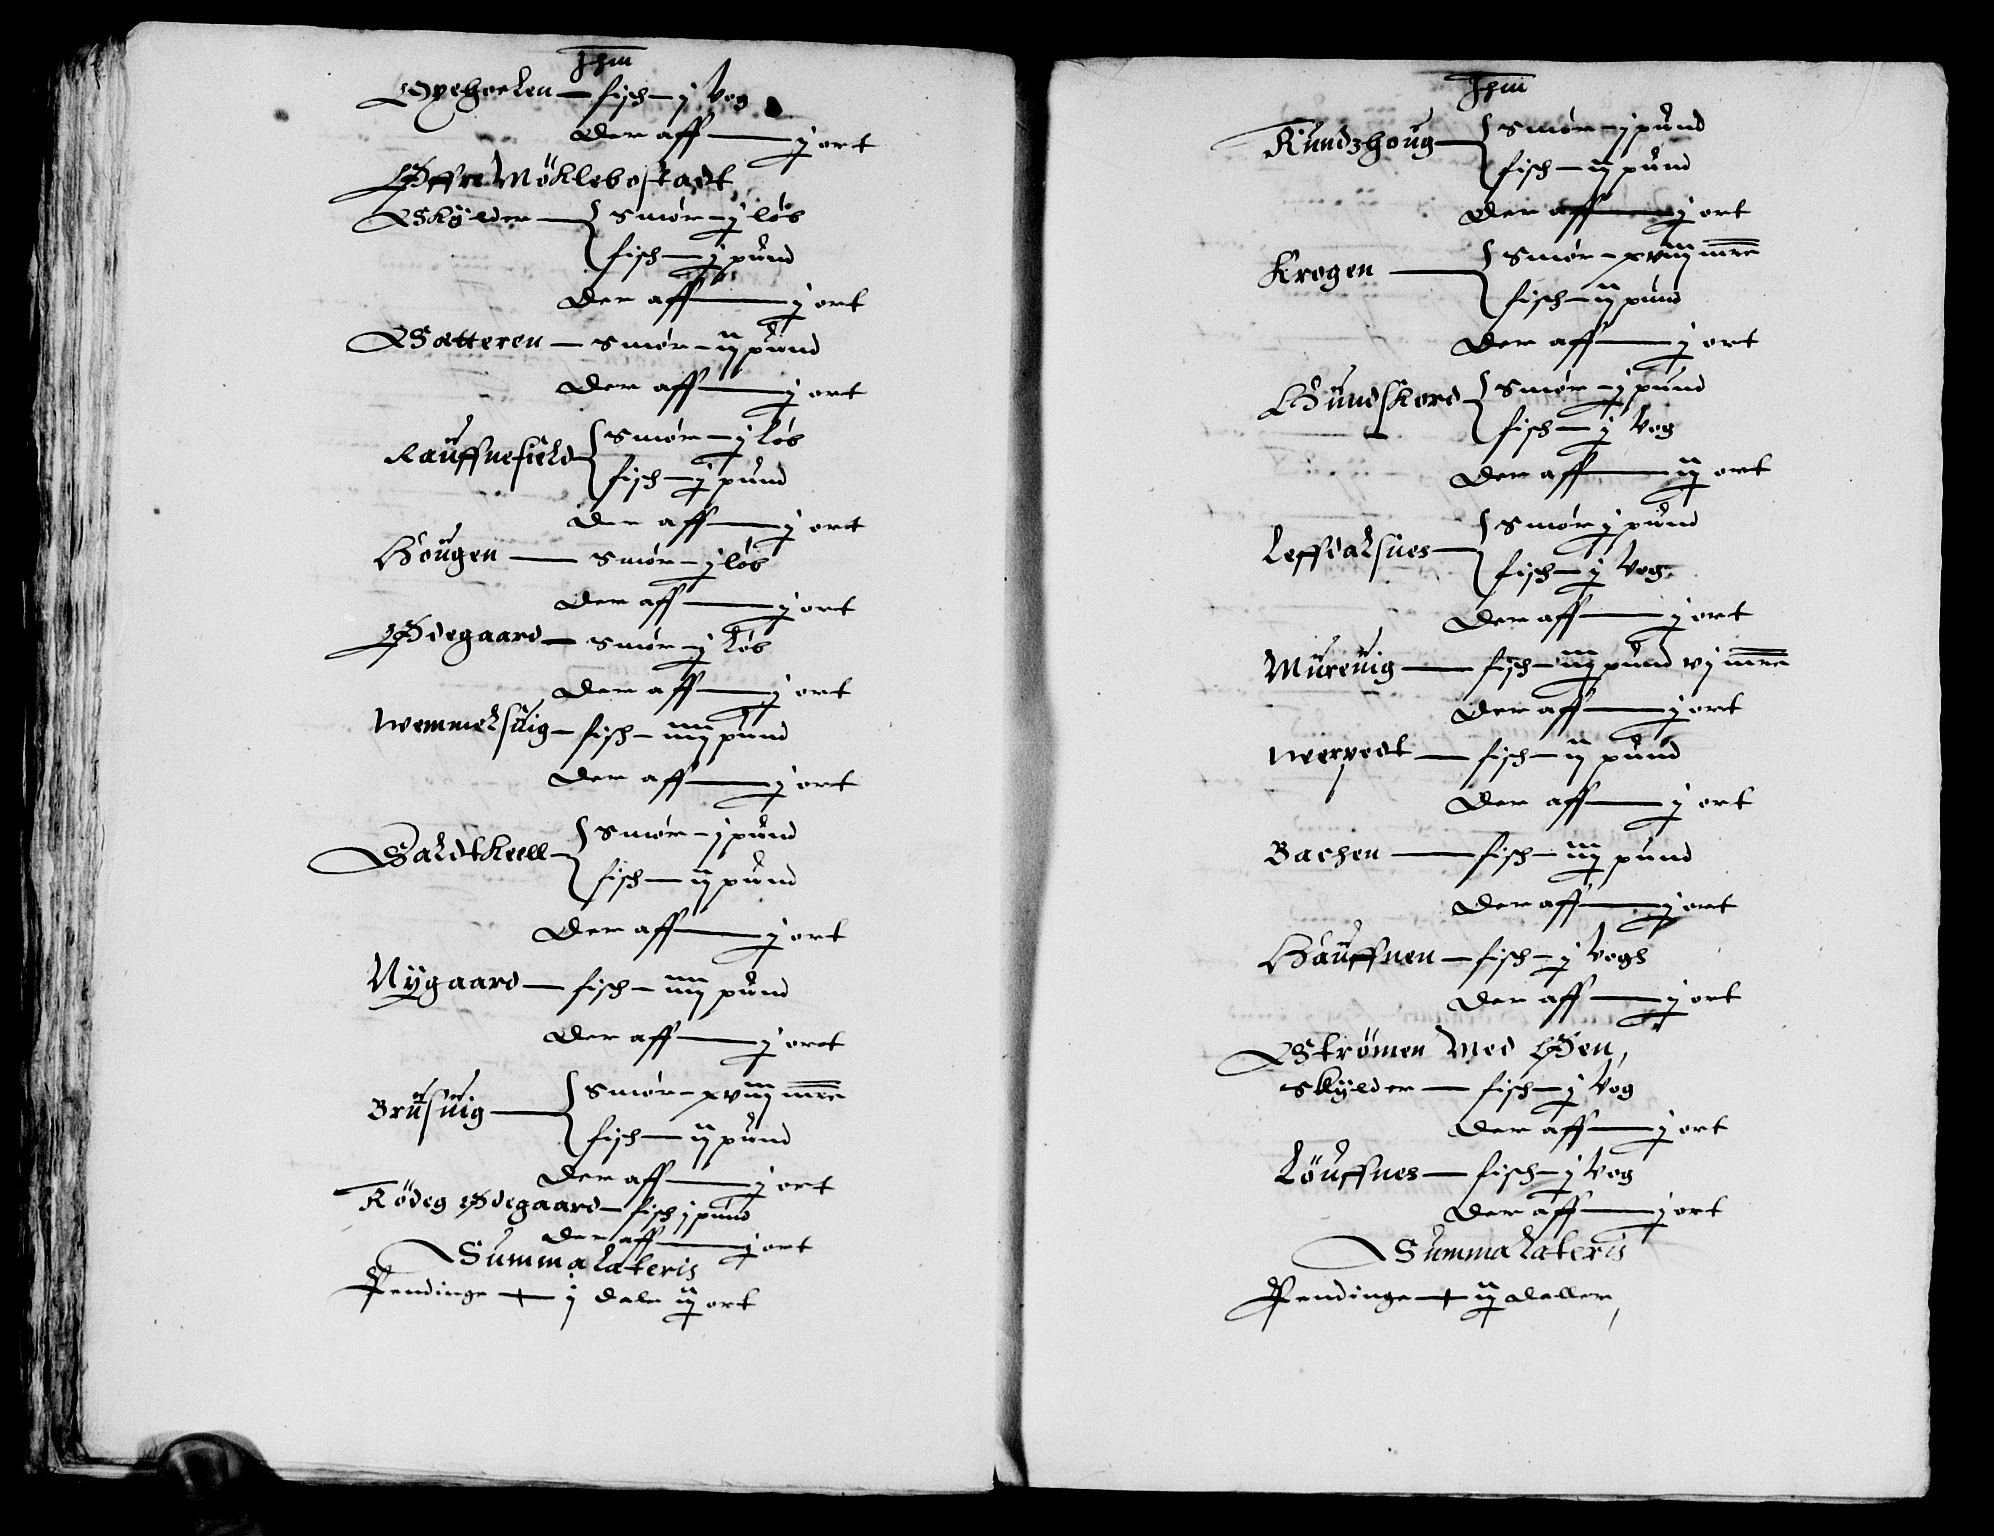 Jhm
Opehoelen — fisch — j Vog
Der aff — j ort
Øffre Møklebostadt
Skÿlder — Smør — j løb
fisch — j pund
Der aff — j ort
Satteren — Smør — ij pund
Der aff — j ort
Rauffnefield — Smør — j løb
fisch — j pund
Der aff — j ort
Hougen — Smør — j løb
Der aff — j ort
Ødegaard — Smør — j løb
Der aff — j ort
Wemmelsuig — fisch — iiij pund
Der aff — j ort
Saldtkiell — Smør — j pund
fisch — ij pund
Der aff — j ort
Nÿgaard — fisch — iiij pund
Der aff — j ort
Brusuig — Smør — xviij mre
fisch — ij pund
Der aff — j ort
Rødeg Ødegaard — fisch j pund
Der aff — j ort
Summa Lateris
Pendinge — j daler iij ort
Jhm
Rundzhoug — Smør — j pund
fisch — ij pund
Der aff — j ort
Krogen — Smør — xviij mre
fisch — ij pund
Der aff — j ort
Hundskord — Smør — j pund
fisch — j Vog
Der aff — ij ort
Leffdalsnes — Smør j pund
fisch — j Vog
Der aff — j ort
Mureuig — fisch — iij pund vj mre
Der aff — j ort
Werpedt — fisch — ij pund
Der aff — j ort
Bachen — fisch — iij pund
Der aff — j ort
Hauffnen — fisch — j Vogh
Der aff — j ort
Strømen Med Øen,
Skÿlder — fisch — j Vog
Der aff — j ort
Løuffnes — fisch — j Vog
Der aff — j ort
Summa Lateris
Pendinge — ij daller,